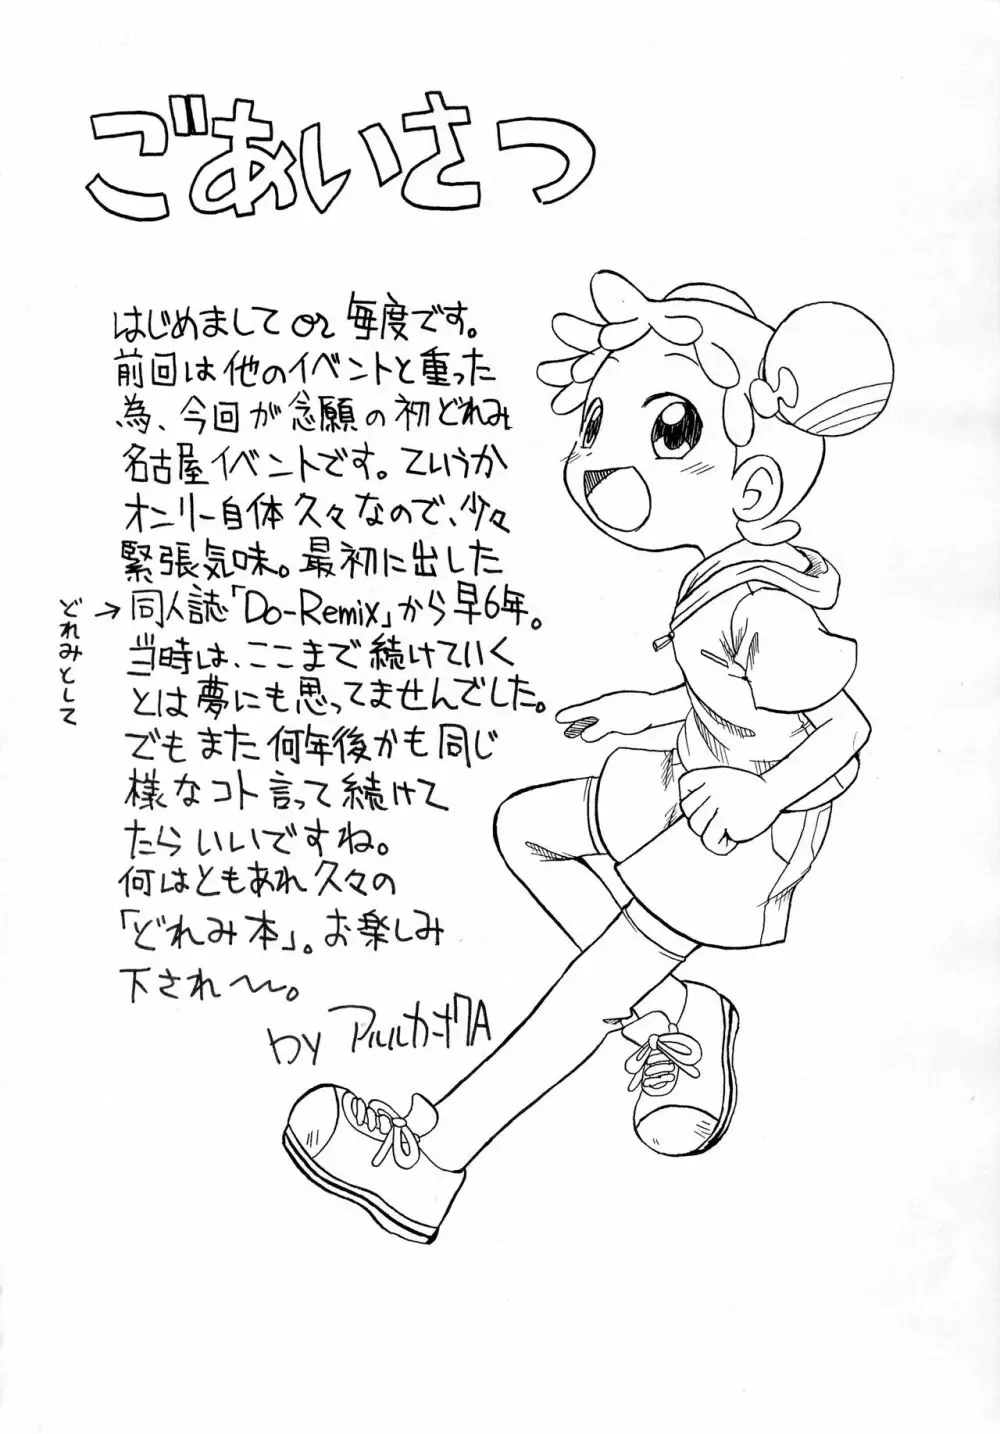 ごあいさつ
はじめまして or 毎度です。
前回は他のイベントと重った
為、今回が念願の初どれみ
名古屋イベントです。ていうか
オンリー自体久々なので、少々
緊張気味。最初に出した
どれみとして
→同人誌「Do-Remix」から早6年。
当時は、ここまで続けていく
とは夢にも思ってませんでした。
でもまた何年後かも同じ
様なコト言って続けて
たらいいですね。
何はともあれ久々の
「どれみ本」。お楽しみ
下され〜〜。
by アルルカン